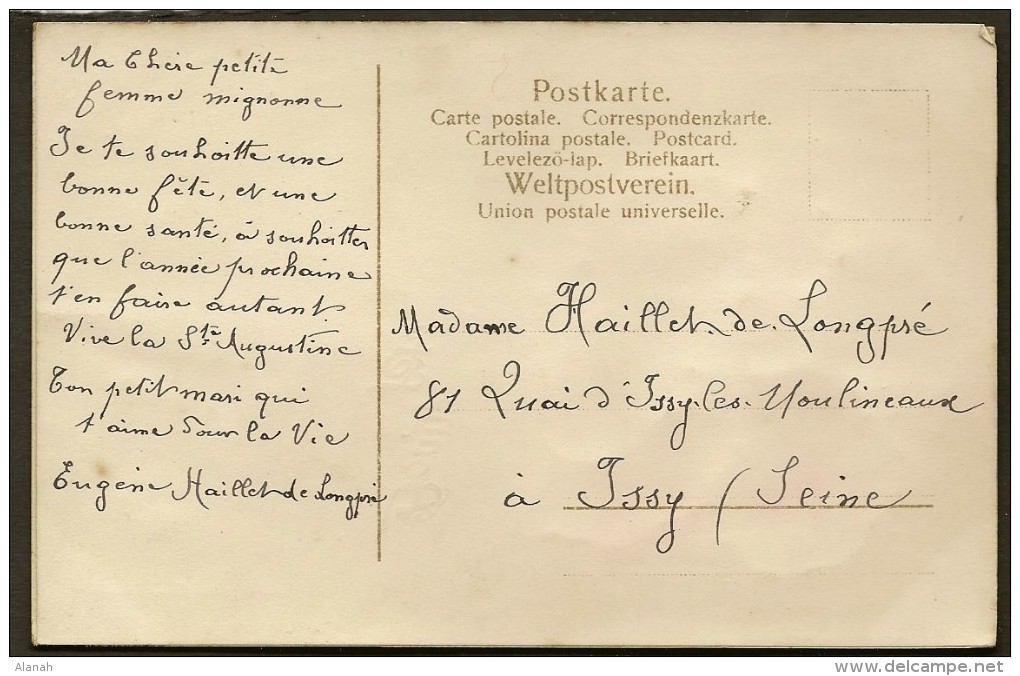 Ma Chère petite
femme mignonne
Je te souhoitte une
bonne fête, et une
bonne santé, à souhoitter
que l'année prochaine
t'en faire autant
Vive la Ste Augustine
Ton petit mari qui
t'aime Pour la Vie
Eugène Haillet de Longpré
Postkarte.
Carte postale. Correspondenzkarte.
Cartolina postale. Postcard.
Levelező-lap. Briefkaart.
Weltpostverein.
Union postale universelle.
Madame Haillet de Longpré
81 Quai d'Issy-les-Moulineaux
à Issy (Seine
Alanah
www.delcampe.net